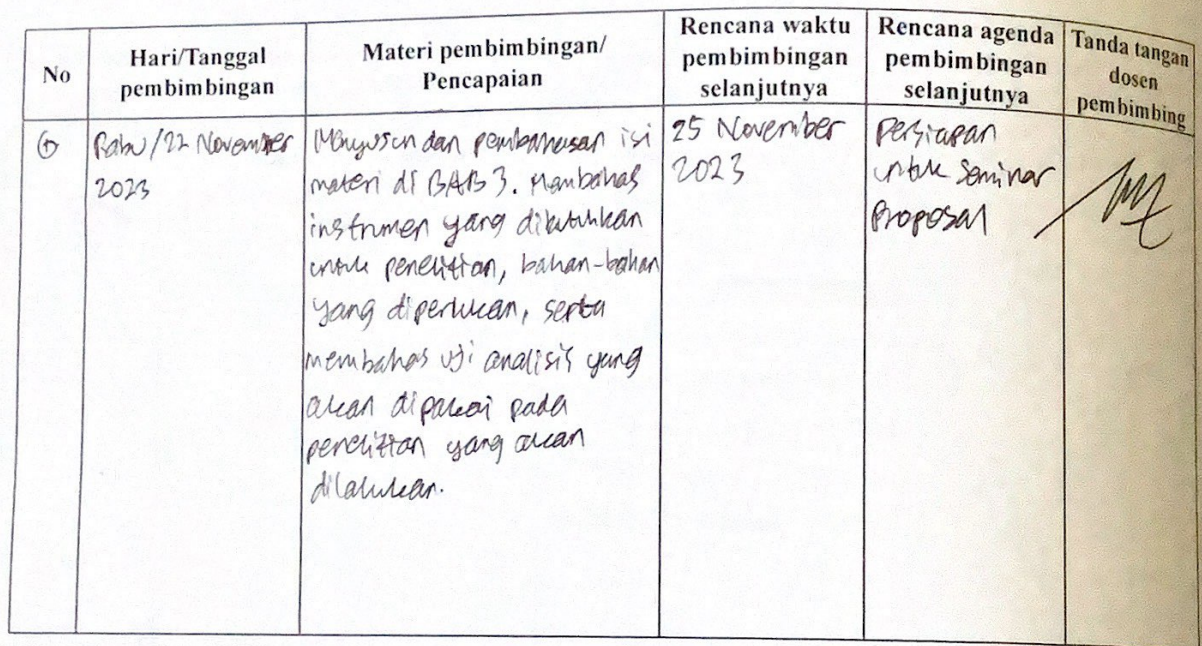 No
Hari/Tanggal
pembimbingan
Materi pembimbingan/
Pencapaian
Rencana waktu
pembimbingan
selanjutnya
Rencana agenda
pembimbingan
selanjutnya
Tanda tangan
dosen
pembimbing
Rabu/22 November
2023
Menyusun dan pembahasan isi
materi di BAB 3. Membahas
instrumen yang dibutuhkan
untuk penelitian, bahan-bahan
yang diperlukan, serta
membahas uji analisis yang
akan dipakai pada
penelitian yang akan
dilakukan.
25 November
2023
Persiapan
untuk Seminar
Proposal